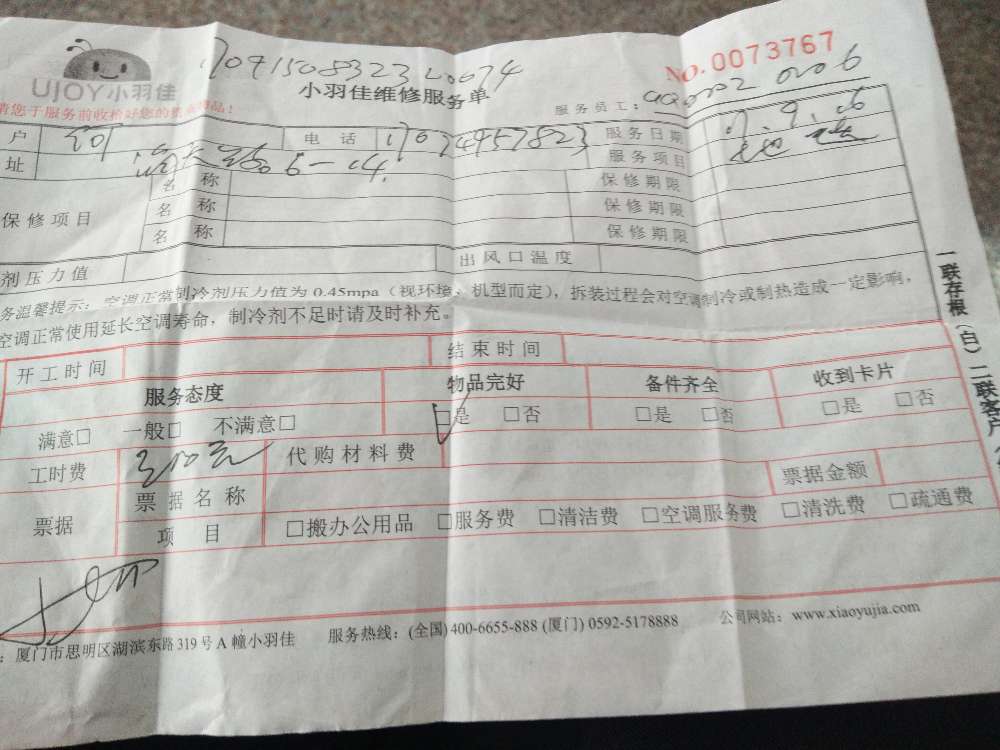 UJOY小羽佳
NO.0073767
小羽佳维修服务单
服务员工：
请您于服务前收检好您的贵重物品！
户 电话 服务日期 17.9.16
址 服务项目
保修项目 名称 保修期限
名称 保修期限
名称 保修期限
剂压力值 出风口温度
务温馨提示：空调正常制冷剂压力值为0.45mpa（视环境、机型而定），拆装过程会对空调制冷或制热造成一定影响，
空调正常使用延长空调寿命，制冷剂不足时请及时补充。
开工时间 结束时间
服务态度 物品完好 备件齐全 收到卡片
满意□ 一般□ 不满意□ □是 □否 □是 □否 □是 □否
工时费 代购材料费
票据 票据名称 票据金额
项目 □搬办公用品 □服务费 □清洁费 □空调服务费 □清洗费 □疏通费
：厦门市思明区湖滨东路319号A幢小羽佳 服务热线：(全国)400-6655-888 (厦门) 0592-5178888 公司网站：www.xiaoyujia.com
一联存根（白）二联客户